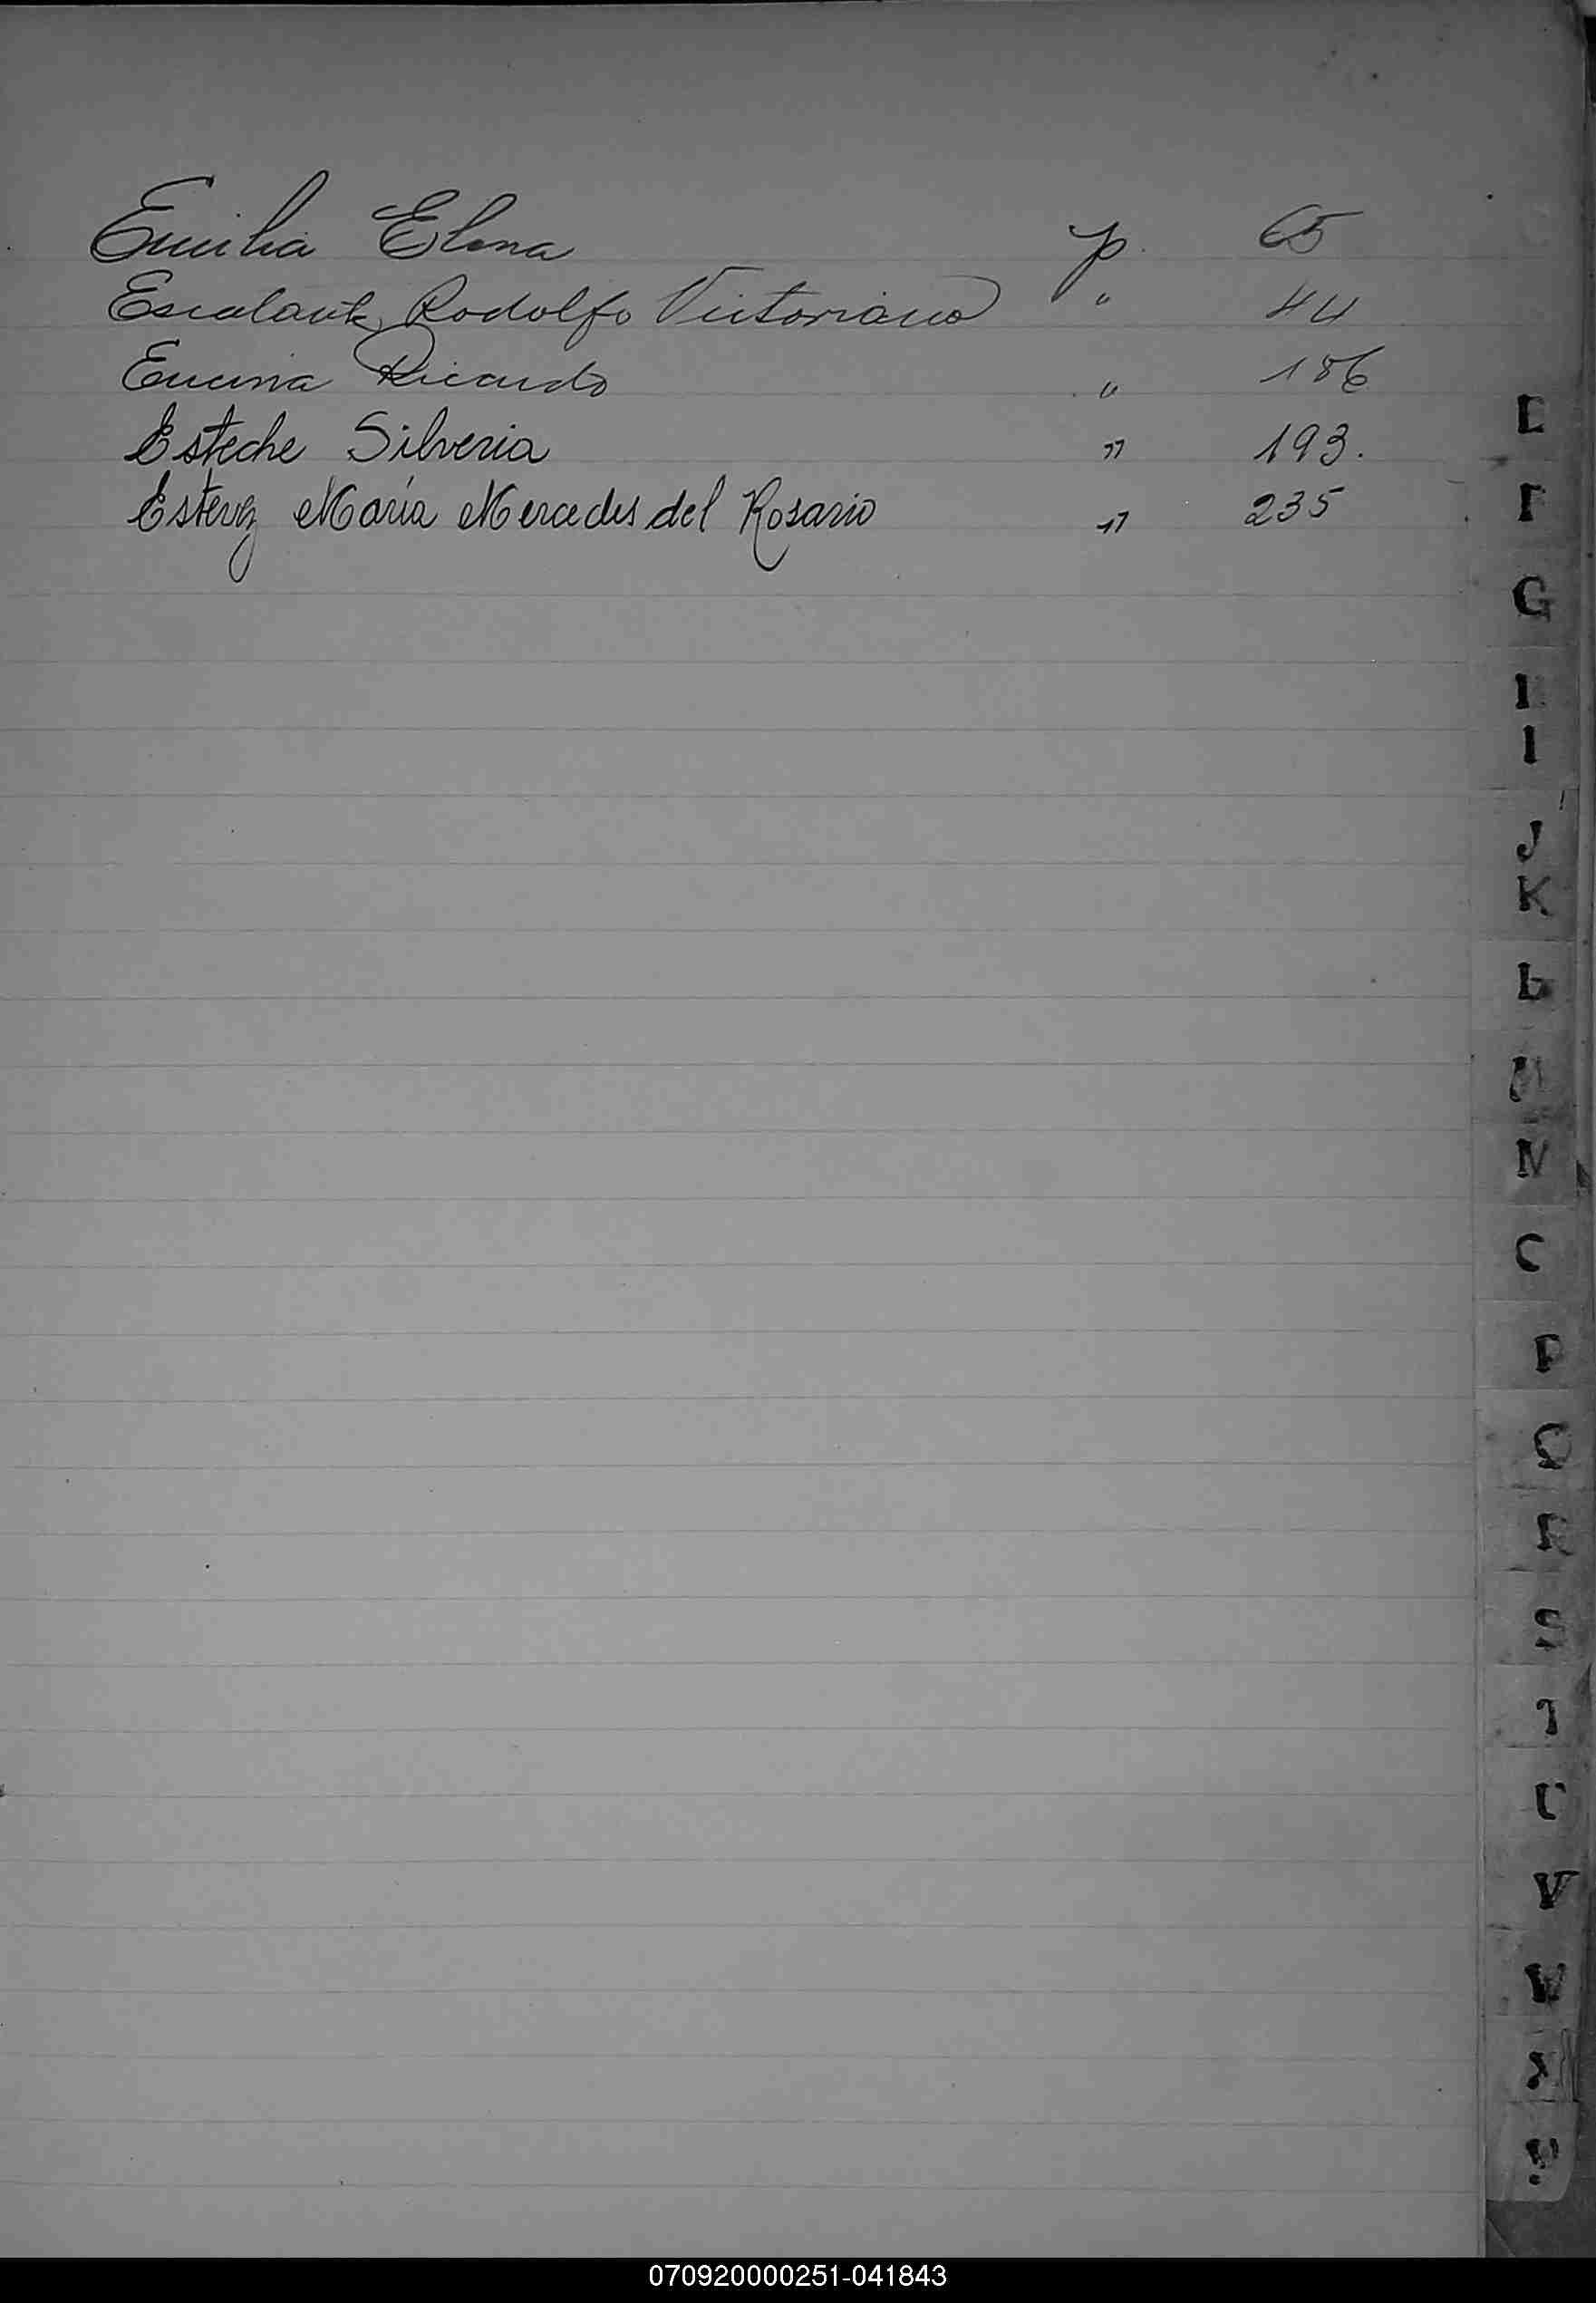 Emilia Elena p. 65
Escalante, Rodolfo Victoriano " 44
Encina Ricardo " 186
Esteche Silveria " 193.
Esterez María Mercedes del Rosario " 235
E
F
G
I
J
K
L
M
N
P
Q
R
S
V
W
070920000251-041843